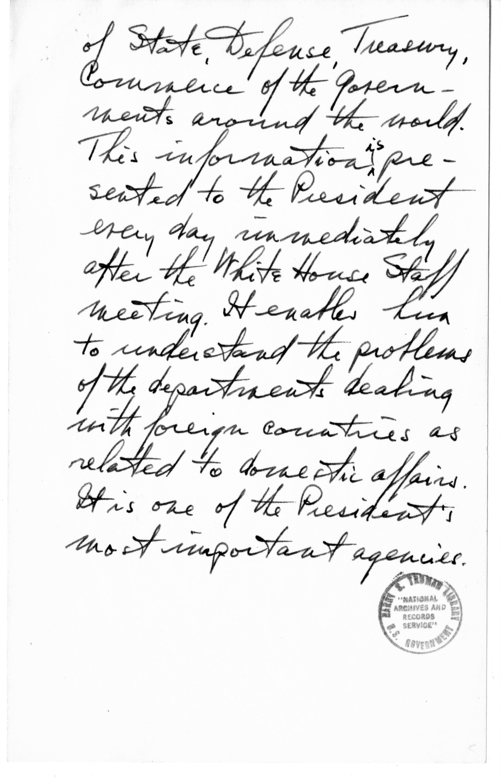 of State, Defense, Treasury,
Commerce of the Govern-
ments around the world.
is
This information pre-
sented to the President
every day immediately
after the White House Staff
meeting. It enables him
to understand the problems
of the departments dealing
with foreign countries as
related to domestic affairs.
It is one of the President's
most important agencies.
HARRY S. TRUMAN LIBRARY
"NATIONAL
ARCHIVES AND
RECORDS
SERVICE"
U.S. GOVERNMENT